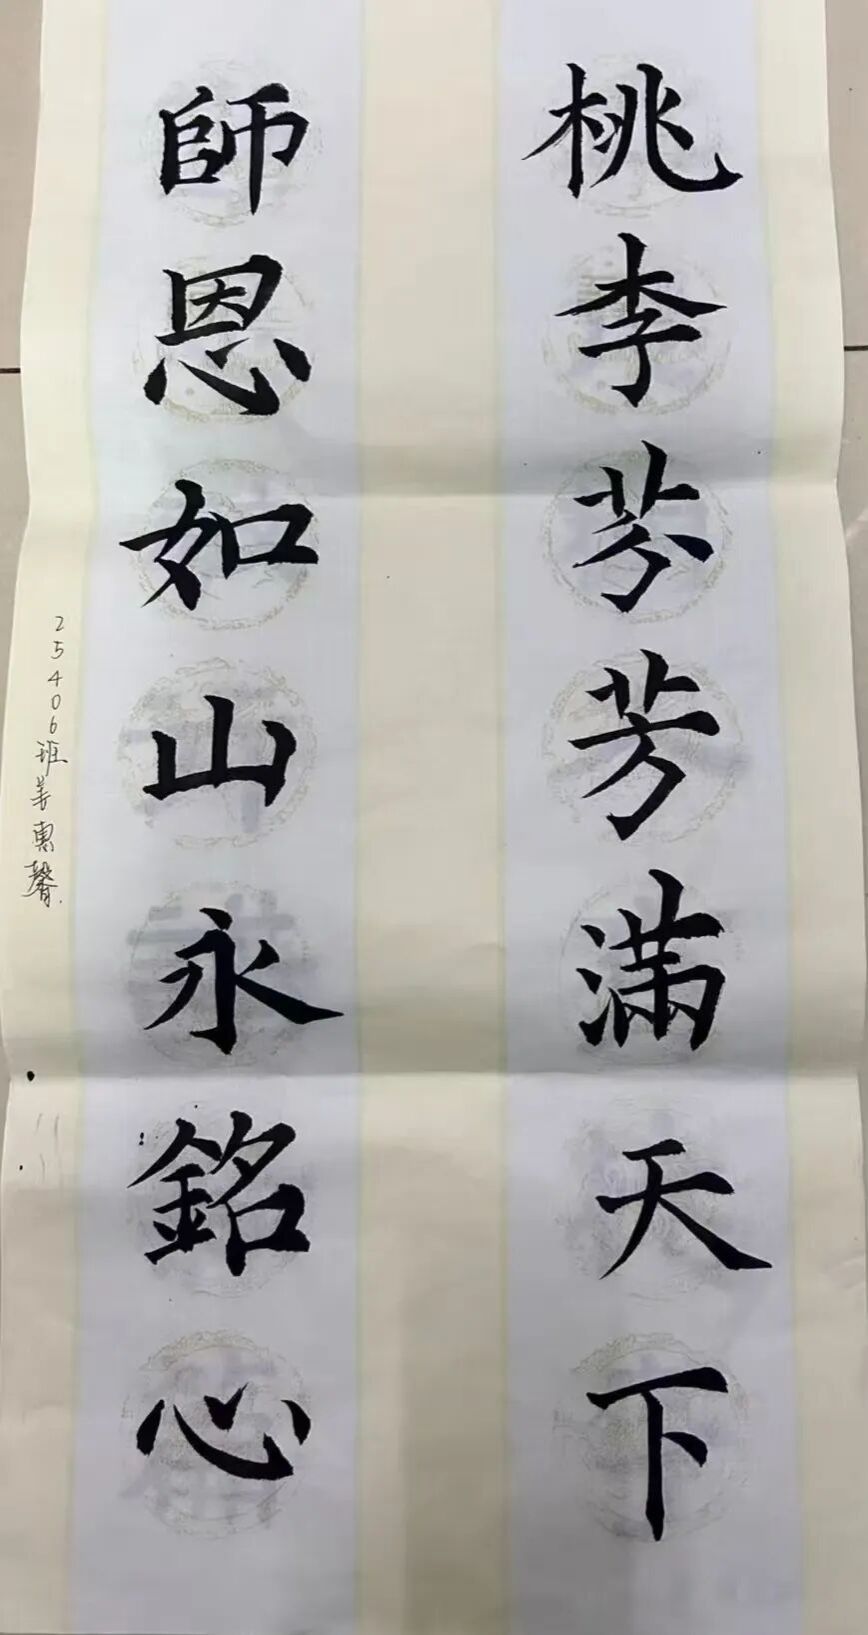 桃李芬芳满天下
師恩如山永銘心
25406班姜惠馨.